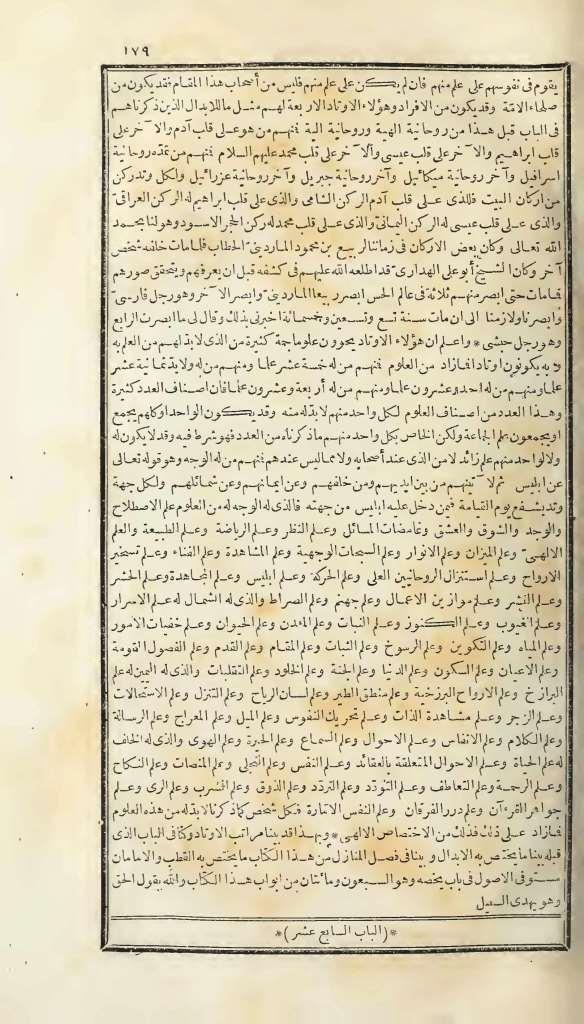 ١٧٩
يقوم فى نفوسهم على علم منهم فان لم يكن على علم منهم فليس من أصحاب هذا المقام فقد يكون من
صلحاء الامّة وقد يكون من الافراد وهؤلاء الاوتاد الاربعة لهم مثل ما للابدال الذين ذكرناهم
فى الباب قبل هذا من روحانية الهية وروحانية الية فمنهم من هو على قلب آدم والآخر على
قلب ابراهيم والآخر على قلب عيسى والآخر على قلب محمد عليهم السلام فمنهم من تمدّه روحانية
اسرافيل وآخر روحانية ميكائيل وآخر روحانية جبريل وآخر روحانية عزرائيل ولكل وتد ركن
من اركان البيت فالذى على قلب آدم الركن الشامى والذى على قلب ابراهيم له الركن العراقىّ
والذى على قلب عيسى له الركن اليمانىّ والذى على قلب محمد له ركن الحجر الاسود وهو لنا بحمد
الله تعالى وكان بعض الاركان فى زماننا الربيع بن محمود الماردينىّ الحطاب فلما مات خلفه شخص
آخر وكان الشيخ أبو على الهوارى قد اطلعه الله عليهم فى كشفه قبل ان يعرفهم وبتحقق صورهم
فما مات حتى ابصر منهم ثلاثة فى عالم الحس ابصر ربيعا الماردينىّ وابصر الآخر وهو رجل فارسىّ
وابصرنا ولازمنا الى ان مات سنة تسع وتسعين وخمسمائة اخبرنى بذلك وقال لى ما ابصرت الرابع
وهو رجل حبشى * واعلم ان هؤلاء الاوتاد يحوون علوما جمة كثيرة من الذى لابدّ لهم من العلم به
وبه يكونون اوتادا فما زاد من العلوم فمنهم من له خمسة عشر علما ومنهم من له ولابدّ ثمانية عشر
علما ومنهم من له احد وعشرون علما ومنهم من له أربعة وعشرون علما فان اصناف العدد كثيرة
وهذا العدد من اصناف العلوم لكل واحد منهم لابدّ له منه وقد يكون الواحد او كلهم يجمع
او يجمعون علم الجماعة ولكن الخاص بكل واحد منهم ما ذكرناه من العدد فهو شرط فيه وقد لا يكون له
ولا لواحد منهم علم زائد لا من الذى عند أصحابه ولا مما ليس عندهم فمنهم من له الوجه وهو قوله تعالى
عن ابليس ثم لآتينهم من بين ايديهم ومن خلفهم وعن ايمانهم وعن شمائلهم ولكل جهة
وتد يشفع يوم القيامة فيمن دخل عليه ابليس من جهته فالذى له الوجه له من العلوم علم الاصطلام
والوجد والشوق والعشق وغامضات المسائل وعلم النظر وعلم الرياضة وعلم الطبيعة والعلم
الالهىّ وعلم الميزان وعلم الانوار وعلم السبحات الوجهية وعلم المشاهدة وعلم الفناء وعلم تسخير
الارواح وعلم استنزال الروحانيين العلى وعلم الحركة وعلم ابليس وعلم المجاهدة وعلم الحشر
وعلم النشر وعلم موازين الاعمال وعلم جهنم وعلم الصراط والذى له الشمال له علم الاسرار
وعلم الغيوب وعلم الكنوز وعلم النبات وعلم المعدن وعلم الحيوان وعلم خفيات الامور
وعلم المياه وعلم التكوين وعلم الرسوخ وعلم الثبات وعلم المقام وعلم القدم وعلم الفصول المقومة
وعلم الاعيان وعلم السكون وعلم الدنيا وعلم الجنة وعلم الخلود وعلم التقلبات والذى له اليمين له علم
البرازخ وعلم الارواح البرزخية وعلم منطق الطير وعلم لسان الرياح وعلم التنزل وعلم الاستحالات
وعلم الزجر وعلم مشاهدة الذات وعلم تحريك النفوس وعلم الميل وعلم المعراج وعلم الرسالة
وعلم الكلام وعلم الانفاس وعلم الاحوال وعلم السماع وعلم الحيرة وعلم الهوى والذى له الخلف
له علم الحياة وعلم الاحوال المتعلقة بالعقائد وعلم النفس وعلم التجلى وعلم المنصات وعلم النكاح
وعلم الرحمة وعلم التعاطف وعلم التودّد وعلم التردّد وعلم الذوق وعلم الشرب وعلم الرى وعلم
جواهر القرءآن وعلم درر الفرقان وعلم النفس الامّارة فكل شخص كما ذكرنا لابدّ له من هذه العلوم
فما زاد على ذلك فذلك من الاختصاص الالهى * وبهذا قد بينا مراتب الاوتاد وكنا فى الباب الذى
قبله بينا ما يختص به الابدال وبينا فى فصل المنازل من هذا الكتاب ما يختص به القطب والامامان
مستوفى الاصول فى باب يخصه وهو السبعون ومائتان من ابواب هذا الكتاب والله يقول الحق
وهو يهدى السبيل
* (الباب السابع عشر) *